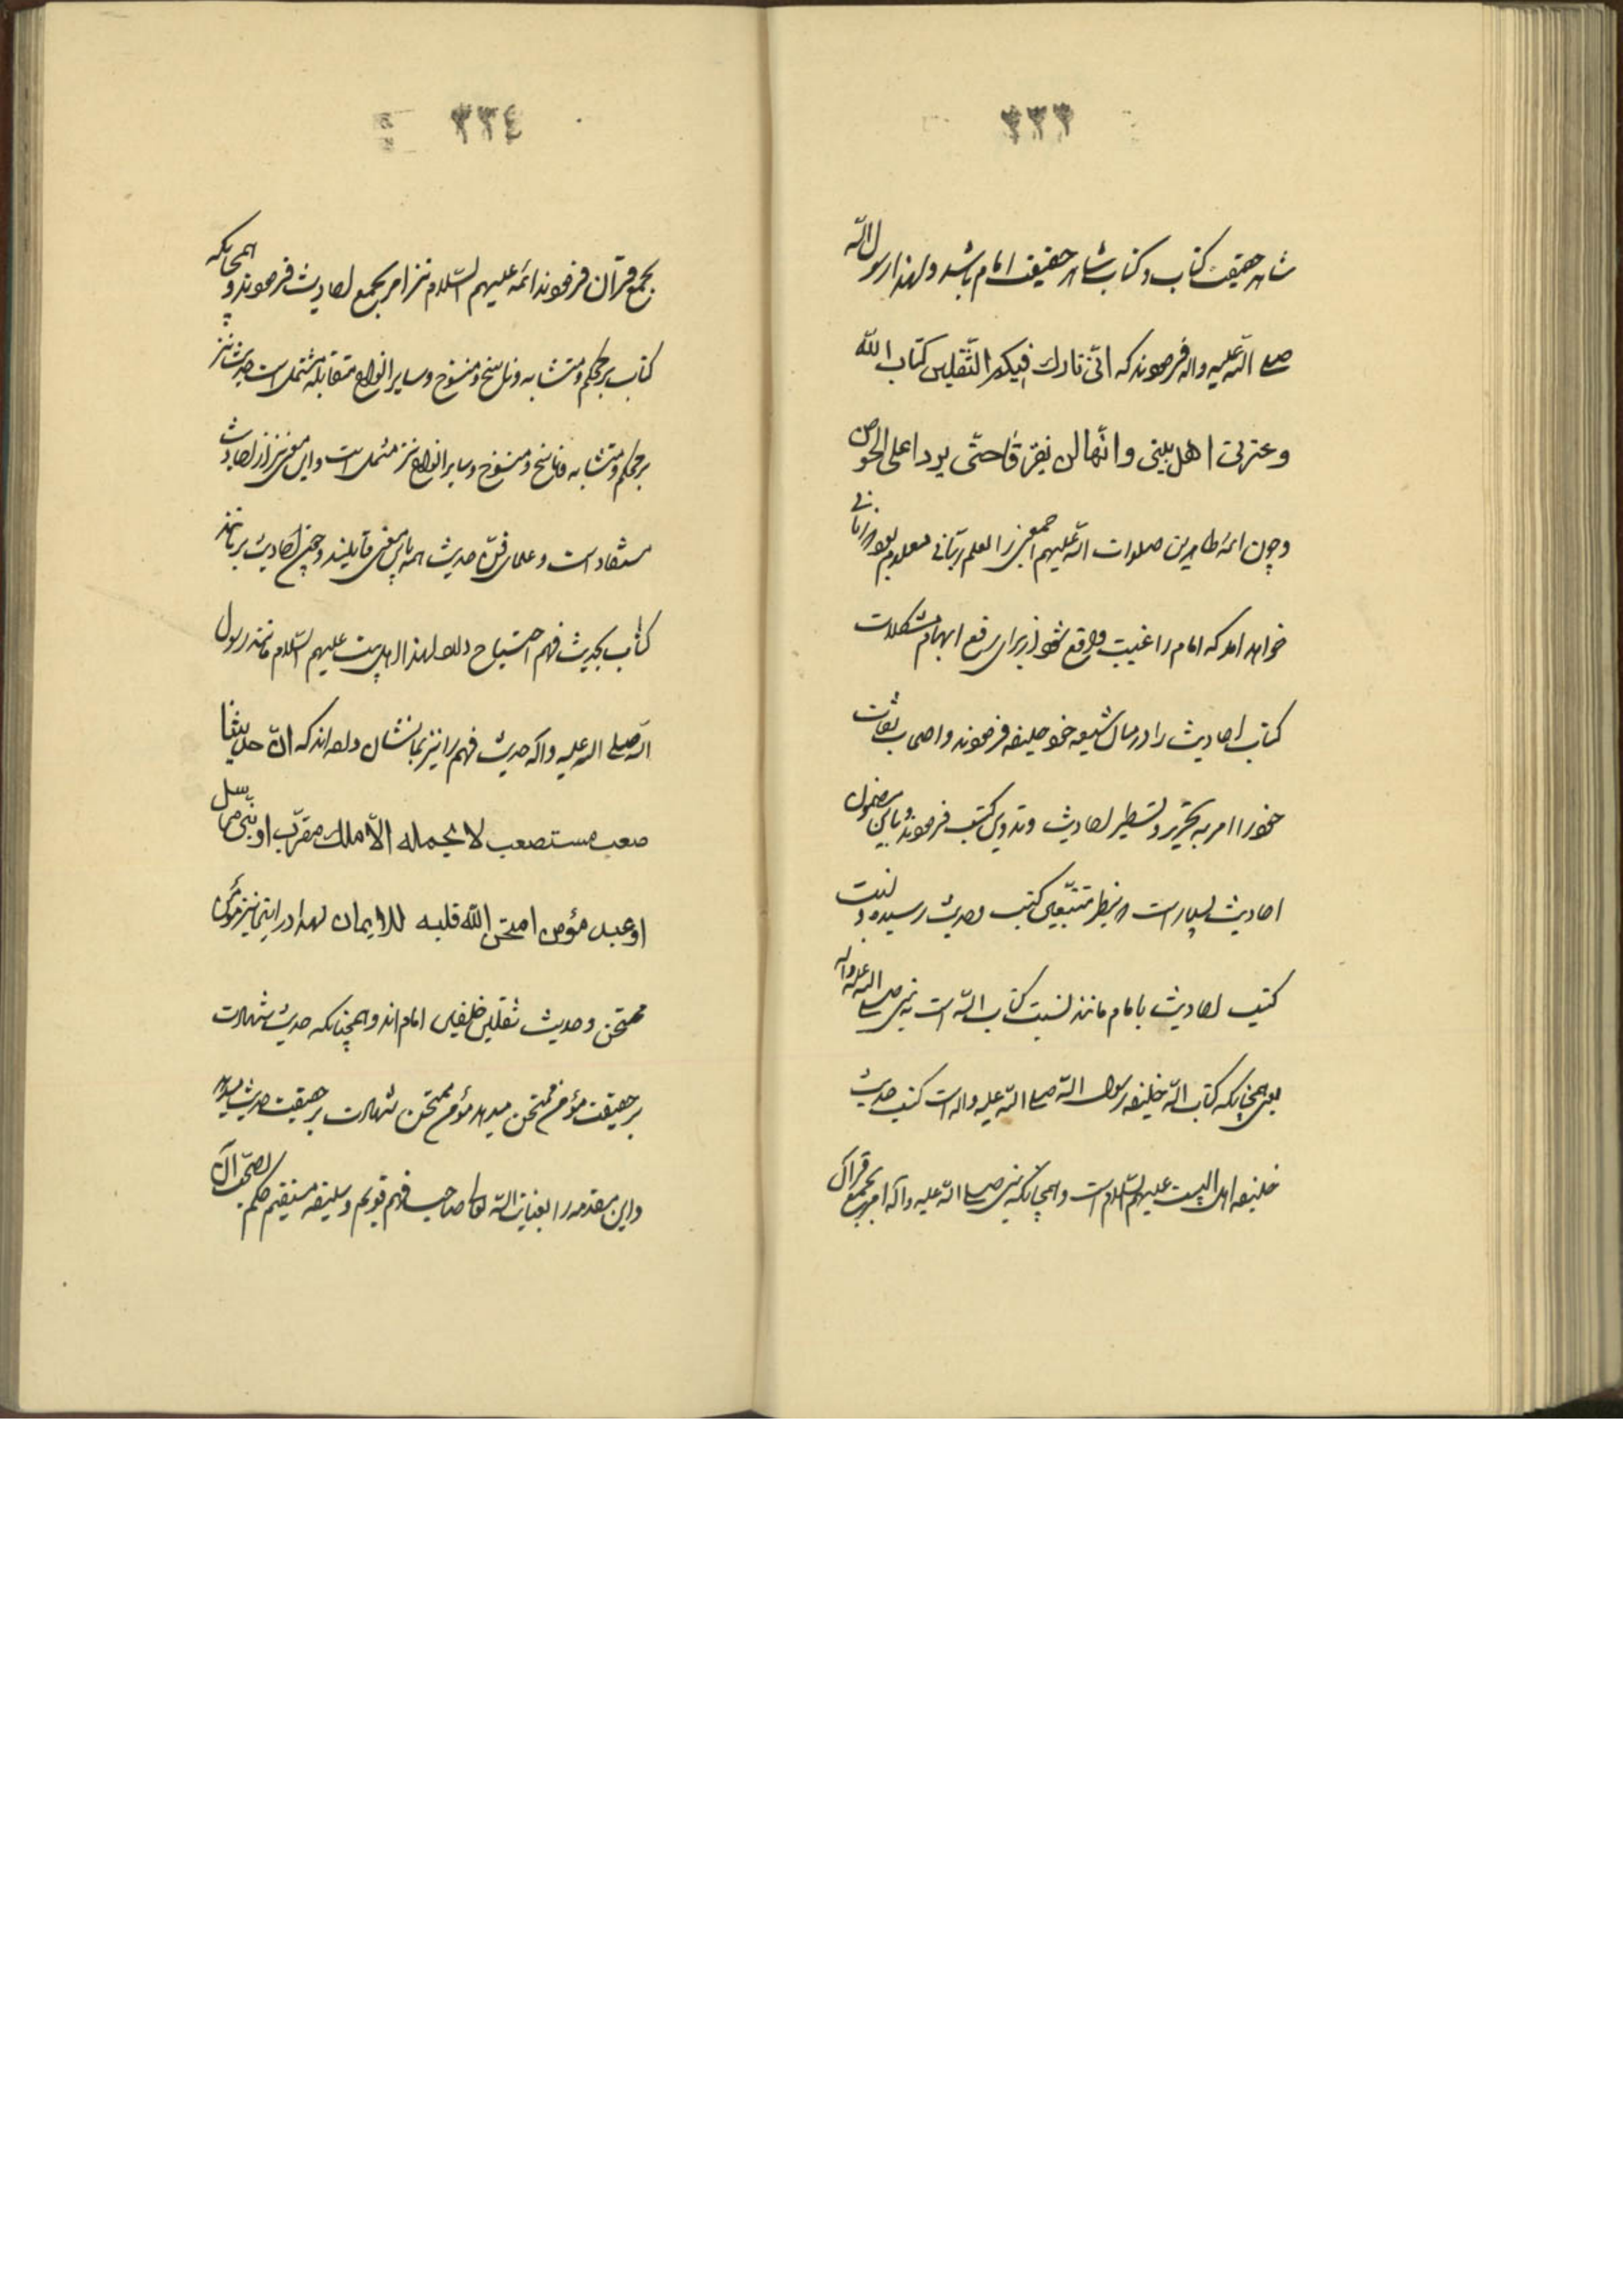 ٣٣٣
شاهد حقیقت کتاب و کتاب شاهد حقیقت امام باشد و لهذا رسول الله
صلی الله علیه و اله فرمودند که انّی تارك فیکم الثّقلین کتاب الله
و عترتی اهل بیتی و انّهما لن یفترقا حتّی یردا علی الحوض
و چون ائمه طاهرین صلوات الله علیهم اجمعین را بعلم ربّانی معلوم بود که زمانی
خواهد امد که امام را غیبت واقع شود از برای رفع ابهام و مشکلات
کتاب احادیث را در میان شیعه خود خلیفه فرمودند و اصحاب ثقات
خود را امر به تحریر و تسطیر احادیث و تدوین کتب فرمودند و باین مضمون
احادیث بسیار است که بنظر متتبّعین کتب حدیث رسیده و نسبت
کتب احادیث با امام مانند نسبت کتاب الله است به نبی صلی الله علیه و اله
یعنی همچنانکه کتاب الله خلیفه رسول الله صلی الله علیه و اله است کتب حدیث
خلیفه اهل البیت علیهم السّلام است و همچنانکه نبی صلی الله علیه و آله امر بجمع قرآن
٣٣٤
بجمع قرآن فرمودند ائمه علیهم السّلام نیز امر بجمع احادیث فرمودند و همچنانکه
کتاب بر محکم و متشابه و ناسخ و منسوخ و سایر انواع متقابله مشتمل است حدیث نیز
بر محکم و متشابه و ناسخ و منسوخ و سایر انواع نیز مشتمل است و این معنی نیز از احادیث
مستفاد است و علمای فنّ حدیث همه باین معنی قایلند و چنین احادیث بر مانند
کتاب بحدیث فهم احتیاج دارد لهذا اهل بیت علیهم السّلام مانند رسول
الله صلی الله علیه و اله حدیث فهم را نیز بما نشان داده اند که انّ حدیثنا
صعب مستصعب لا یحمله الّا ملك مقرّب او نبّی مرسل
او عبد مؤمن امتحن الله قلبه للایمان لهذا در اینجا نیز مؤمن
ممتحن و حدیث ثقلین خلیفتین امام اند و همچنانکه حدیث شهادت
بر حقیقت مؤمن ممتحن میدهد مؤمن ممتحن شهادت بر حقیقت حدیث میدهد
و این مقدمه را بعنایت الله تعالی صاحب فهم قویم و سلیقه مستقیم حکم بصحّت آن